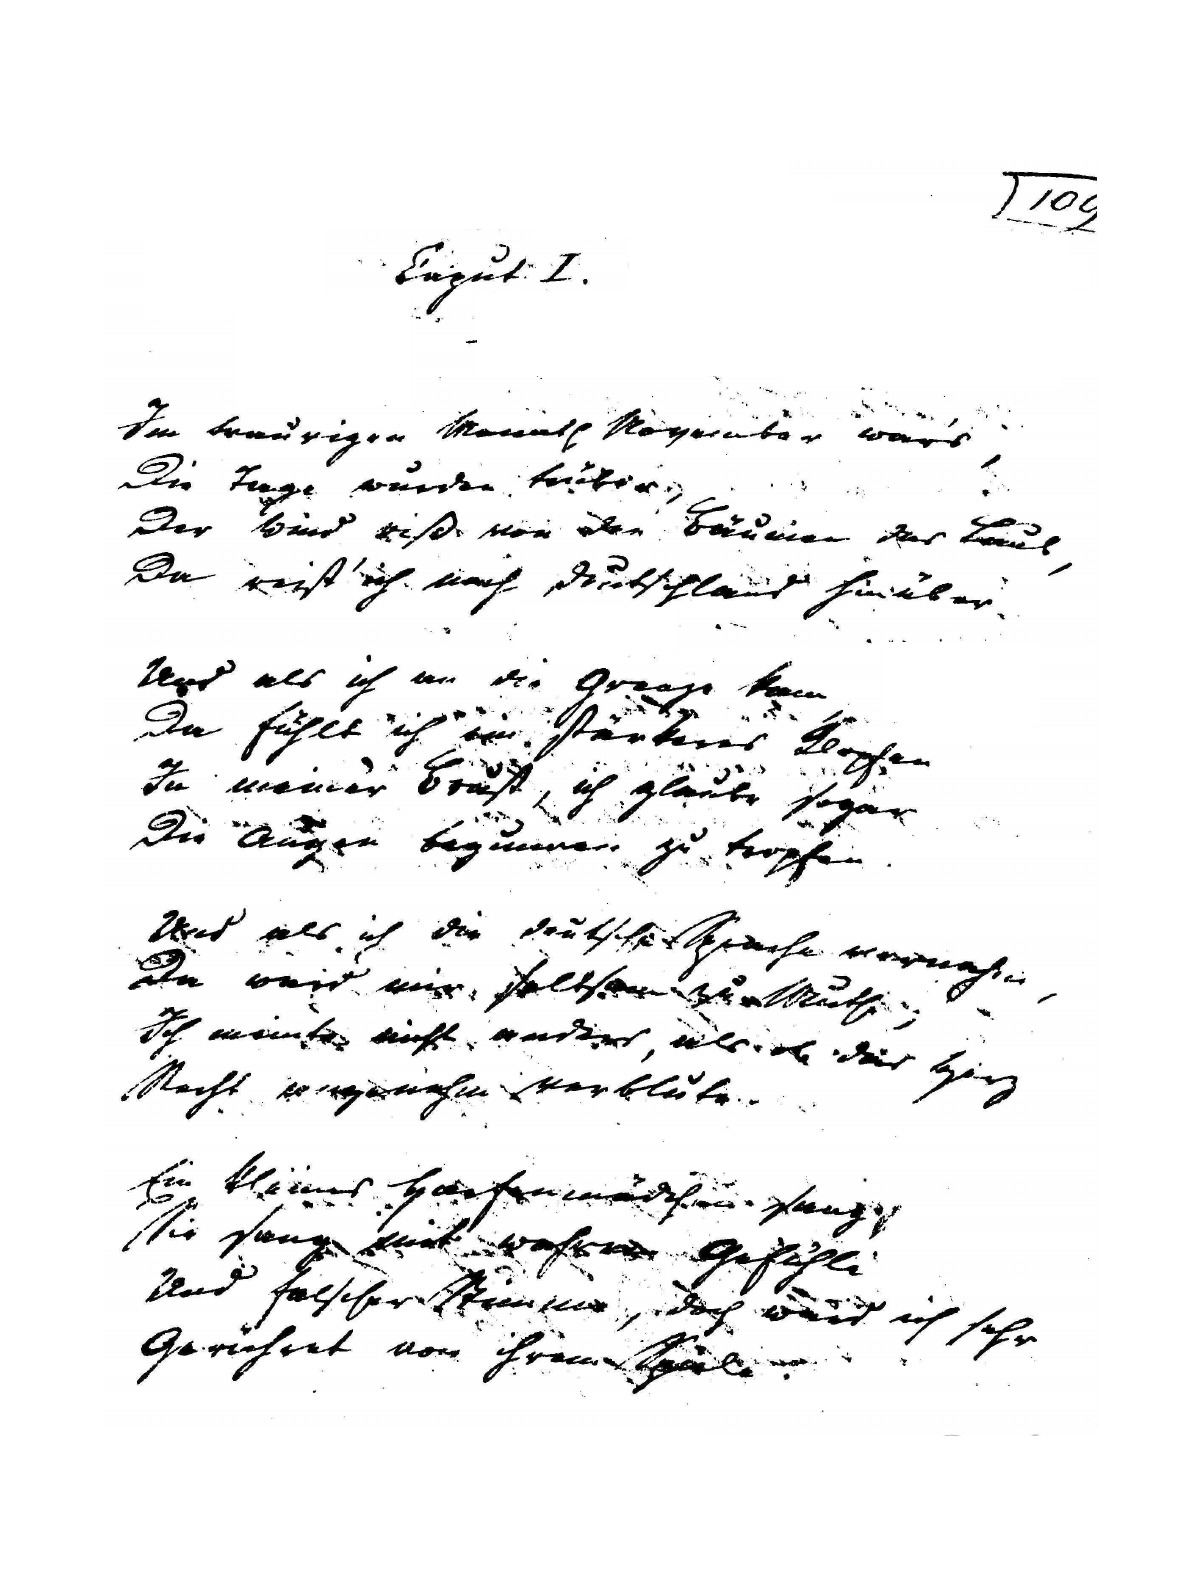 109
Caput I.
Im traurigen Monath November war's,
Die Tage wurden trüber,
Der Wind riß von den Bäumen das Laub,
Da reist' ich nach Deutschland hinüber.
Und als ich an die Grenze kam,
Da fühlt ich ein stärkeres Klopfen
In meiner Brust, ich glaube sogar
Die Augen begunnen zu tropfen.
Und als ich die deutsche Sprache vernahm,
Da ward mir seltsam zu Muthe;
Ich meinte nicht anders, als ob das Herz
Recht angenehm verblute.
Ein kleines Harfenmädchen sang,
Sie sang mit wahrem Gefühle
Und falscher Stimme, doch ward ich sehr
Gerühret von ihrem Spiele.